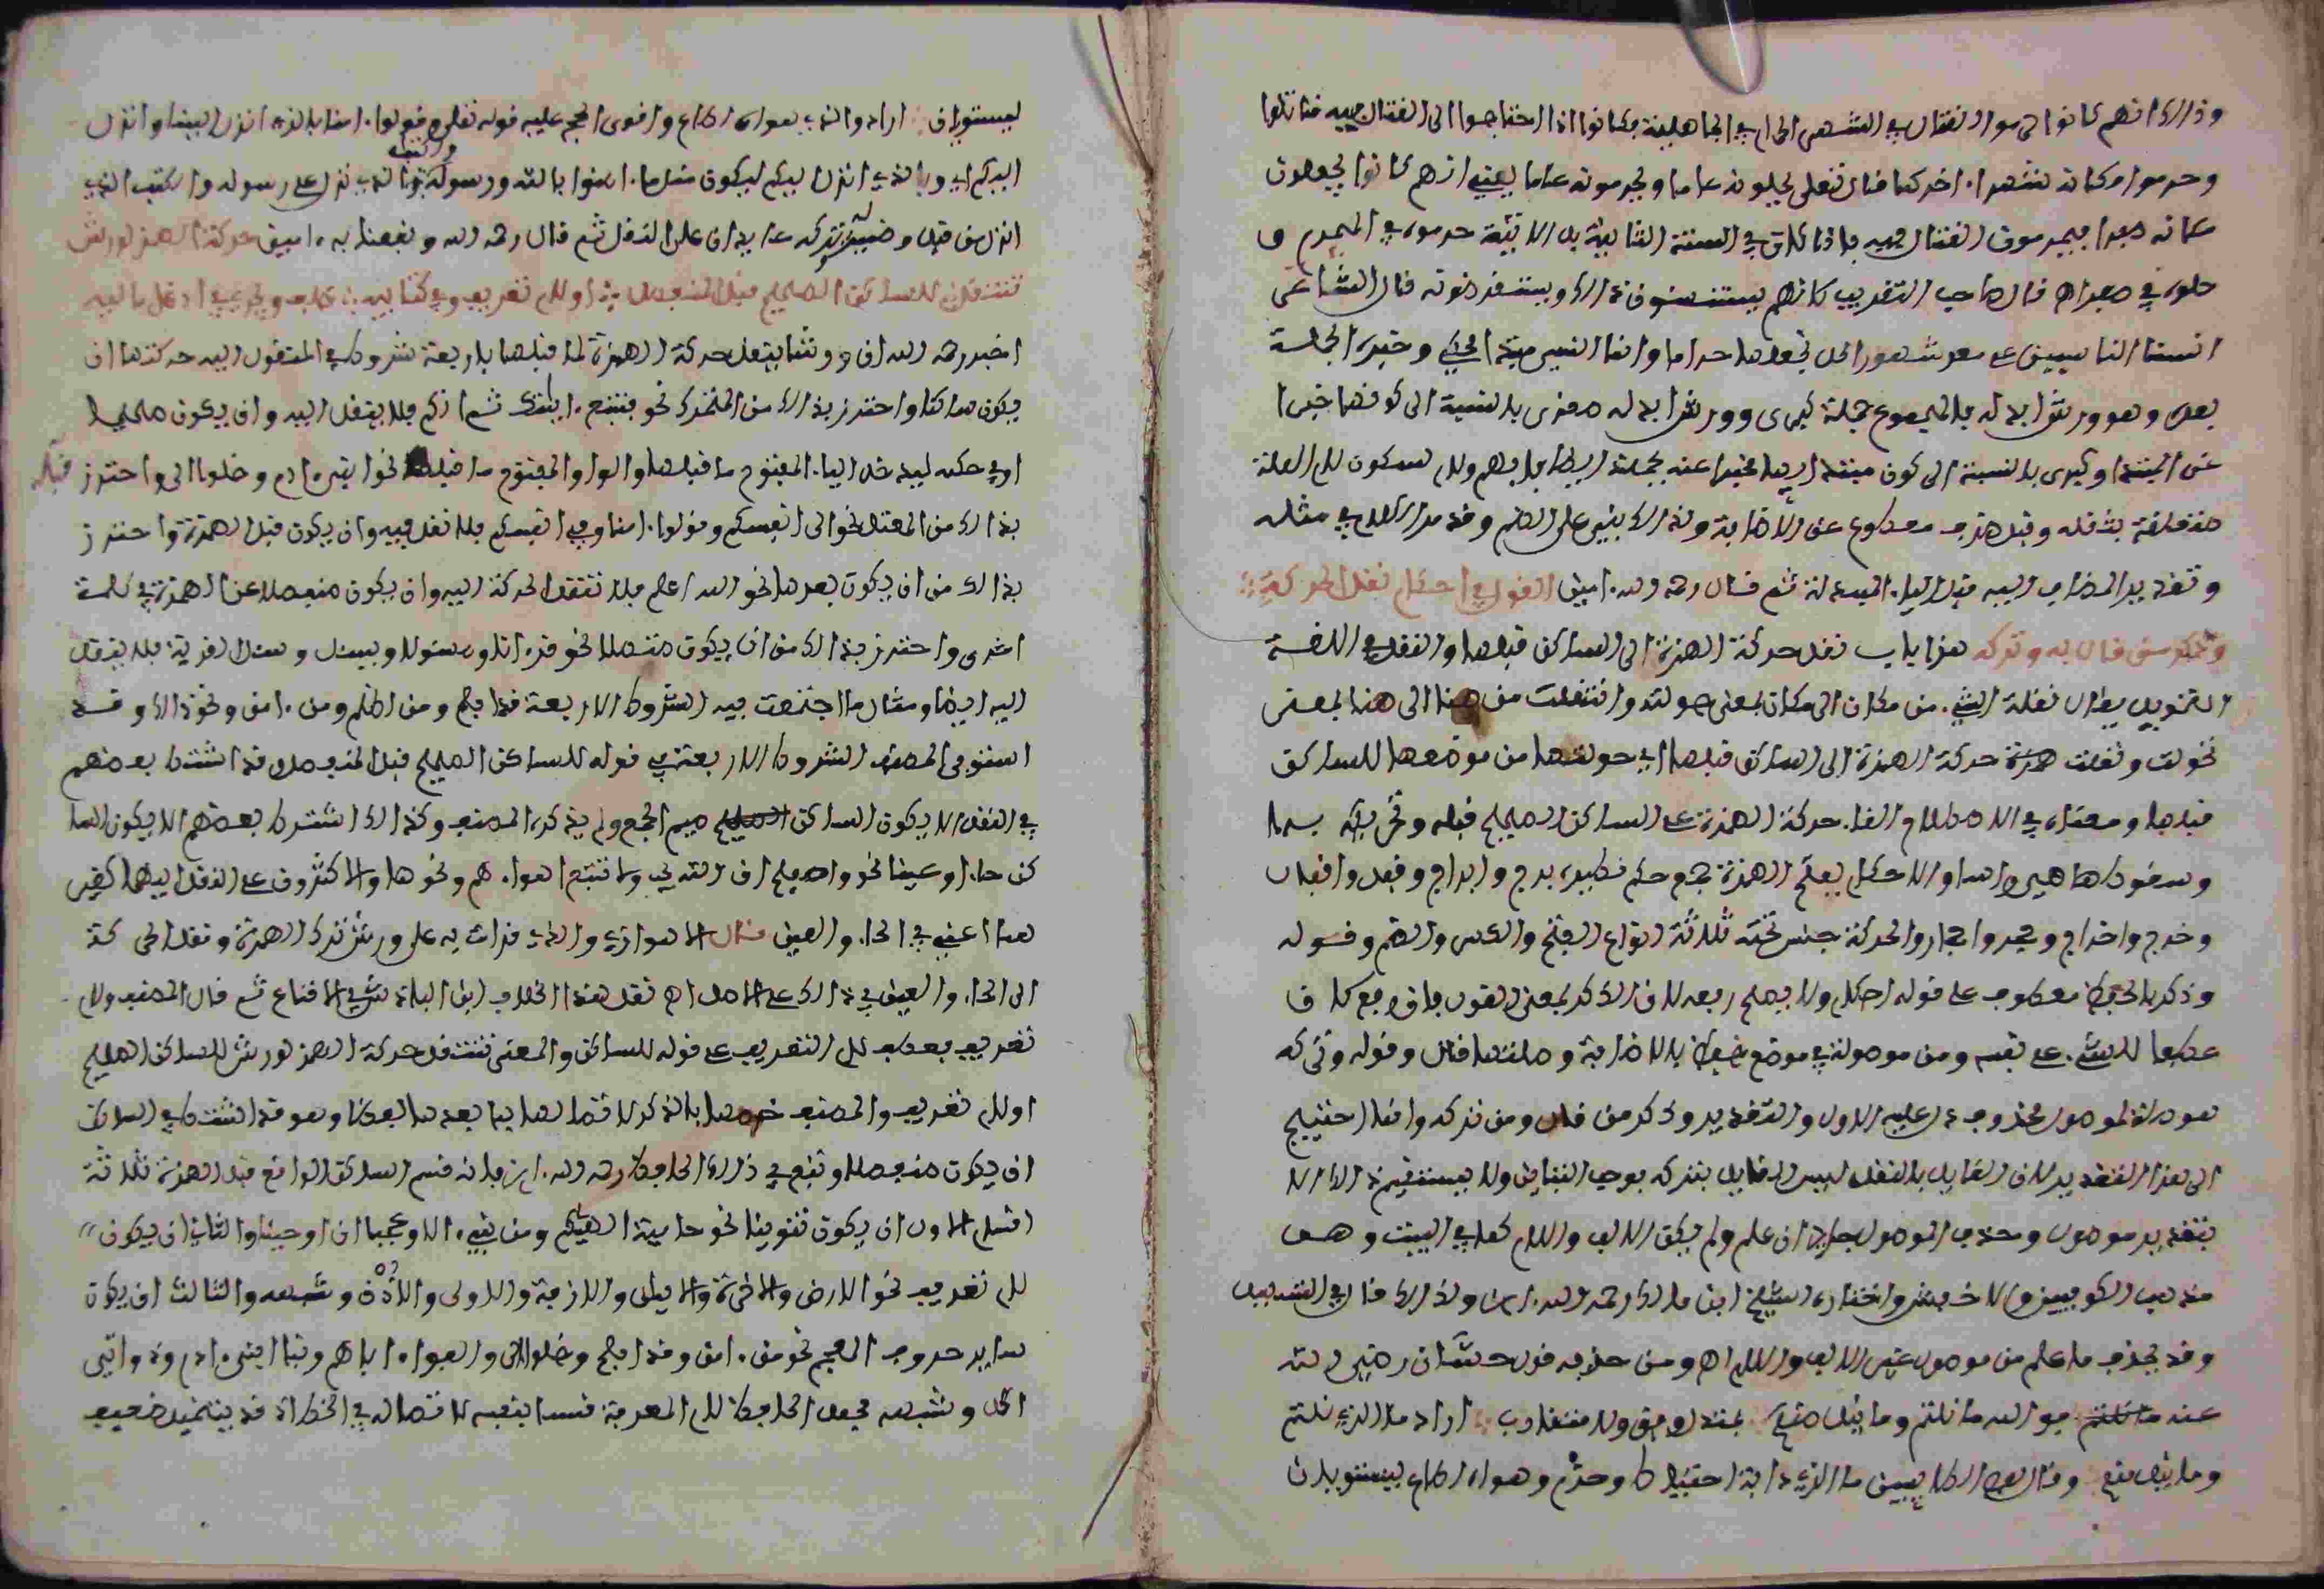 وذالك انهم كانوا حرموا القتال في الشهر الحرام في الجاهلية فكانوا اذا احتاجوا الى القتال فيه قاتلوا
وحرموا مكانه شهرا اخر كما قال تعلى يحلونه عاما ويحرمونه عاما يعني انهم كانوا يجعلون
مكانه صفرا فيحرمون القتال فيه فاذا كان في السنة الثانية حرموه في المحرم و
حلوه في صفر اه قال صاحب التقريب كانهم يستنسئون ذالك ويستقرضونه قال الشاعر
السنا الناسيين على معد شهور الحل نجعلها حراما وانما النسي مبتدا وخبره الجملة
بعده وهو ورش ابدله فالمجموع جملة كبرى وورش ابدله صغرى بالنسبة الى كونها خبرا
عن المبتدا وكبرى بالنسبة الى كون مبتدا فيها مخبرا عنه بجملة ايضا فافهم ولام لسكون لام العلة
متعلقة بثقله وقبل ظرف مقطوع عن الاضافة ولذالك بني على الضم وقد مر الكلام في مثله
وتقدير المضاف اليه قبل اليا المبدلة ثم قال رحمه الله امين القول في احكام نقل الحركة
وذكر من قال به وتركه هذا باب نقل حركة الهمزة الى الساكن قبلها والنقل في اللغة
التحويل يقال نقلة الشيء من مكان الى مكان بمعنى حولته وانتقلت من هنا الى هنا بمعنى
تحولت ونقلت حركة الهمزة الى الساكن قبلها اي حولتها من موضعها للساكن
قبلها ومعناه في الاصطلاح القا حركة الهمزة على الساكن الصحيح قبله وتحريكه بها
وسقوطها هي راسا والاحكام بفتح الهمزة جمع حكم فنظيره برج وابراج وقفل واقفال
وخرج واخراج وحجر واحجار والحركة جنس تحته ثلاثة انواع الفتح والكسر والضم وقوله
وذكر بالخفض معطوف على قوله احكام ولا يصلح رفعه لان الذكر بمعنى القول فان رفع كان
عطفا للشيء على نفسه ومن موصولة في موضع خفض بالاضافة وصلتها قال وقوله وتركه
صلة لموصول محذوف دل عليه الاول والتقدير وذكر من قال ومن تركه وانما احتيج
الى هذا التقدير لان القايل بالنقل ليس القايل بتركه يوجب التباين ولا يستقيم ذالك الا
بتقدير موصول وحذف الموصول جايز ان علم ولم يكن الالف واللام كما في البيت وهو
مذهب الكوفيين والاخفش واختاره الشيخ ابن مالك رحمه الله ولذالك قال في التسهيل
وقد يحذف ما علم من موصول غير الالف واللام اه ومن حذفه قول حسان رضي الله
عنه فو الله ما نلتم وما نيل منكم بمعتدل وفق ولا متقارب اراد ما الذي نلتم
وما نيل منكم وقال بعض الطاييين ما الذي دابه احتياط وحزم وهواه اطاع يستويان
يستويان اراد والذي هواه اطاع واقوى الحجج عليه قوله تعلى وقولوا امنا بالذي انزل الينا وانزل
اليكم اي وبالذي انزل اليكم ليكون مثل امنوا بالله ورسوله والكتاب الذي نزل على رسوله والكتب الذي
انزل من قبل وضمير به وتركه عايدان على النقل ثم قال رحمه الله ونفعنا به امين حركة الهمز لورش
تنتقل للساكن الصحيح قبل المنفصل او لام تعريف وفي كتابيه خلف ويجري في ادغام ماليه
اخبر رحمه الله ان ورشا ينقل حركة الهمزة لما قبلها باربعة شروط في المنقول اليه حركتها ان
يكون ساكنا واحترز بذالك من المتحرك نحو فتتبع ايتك ثم اركم فلا ينقل اليه وان يكون صحيحا
او في حكمه ليدخل اليا المفتوح ما قبلها والواو المفتوح ما قبلها نحو ابني ادم وخلوا الى واحترز
قبله
بذالك من المعتل نحو الى انفسكم وقولوا امنا وفي انفسكم فلا نقل فيه وان يكون قبل الهمزة واحترز
بذالك من ان يكون بعدها نحو الله اعلم فلا تنقل الحركة اليه وان يكون منفصلا عن الهمزة في كلمة
اخرى واحترز بذالك من ان يكون متصلا نحو قرءانا ومسئولا ويسئل وسئل القرية فلا ينقل
اليه ايضا ومثال ما اجتمعت فيه الشروط الاربعة قد افلح ومن اظلم ومن امن ونحو ذالك وقد
استوفى المصنف الشروط الاربعة في قوله للساكن الصحيح قبل المنفصل وقد اشترط بعضهم
في النقل الا يكون الساكن ميم الجمع ولم يذكره المصنف وكذالك اشترط بعضهم الا يكون السا
كن حا او عينا نحو واصلح ان الله وما تتبع اهواءهم ونحوها والاكثرون على النقل اليهما
هنا اعني في الحا والعين قال الاهوازي والذي قرات به على ورش ترك الهمزة ونقل الحركة
الى الحا والعين في ذالك على الاصل اه نقل هذا الخلاف ابن الباذش في الاقناع ثم قال المصنف ولام
تعريف بعطف لام التعريف على قوله للساكن والمعنى تنتقل حركة الهمز لورش للساكن الصحيح
او لام تعريف والمصنف خصها بالذكر لاتصالها بما بعدها لفظا وهو قد اشترط في الساكن
ان يكون منفصلا وتبع في ذالك الحافظ رحمه الله فانه قسم الساكن الواقع قبل الهمزة ثلاثة
اقسام الاول ان يكون تنوينا نحو حامية الهيكم ومن شيء الا وعجبا ان اوحينا والثاني ان يكون
لام تعريف نحو الارض والاخرة والايمن والازفة والاولى والاذن وشبهه والثالث ان يكون
ساير حروف المعجم نحو من امن وقد افلح وخلوا الى والفوا اباهم ونبا ابني ادم وذواتي
اكل وشبهه فجعل الحافظ لام المعرفة قسما بنفسه لاتصاله في الخط اذ قد يتخيل ضعيف